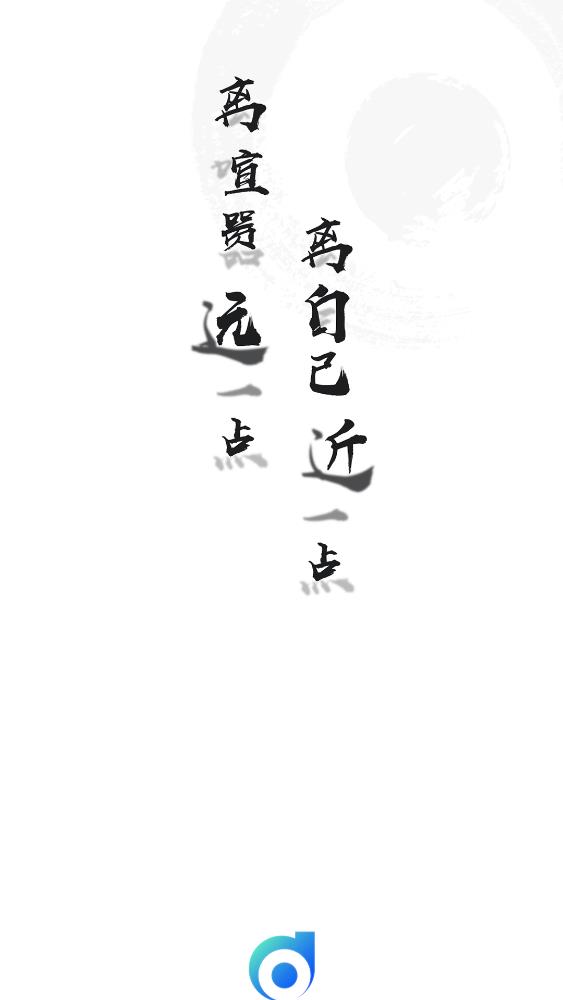 离喧嚣远一点
离自己近一点